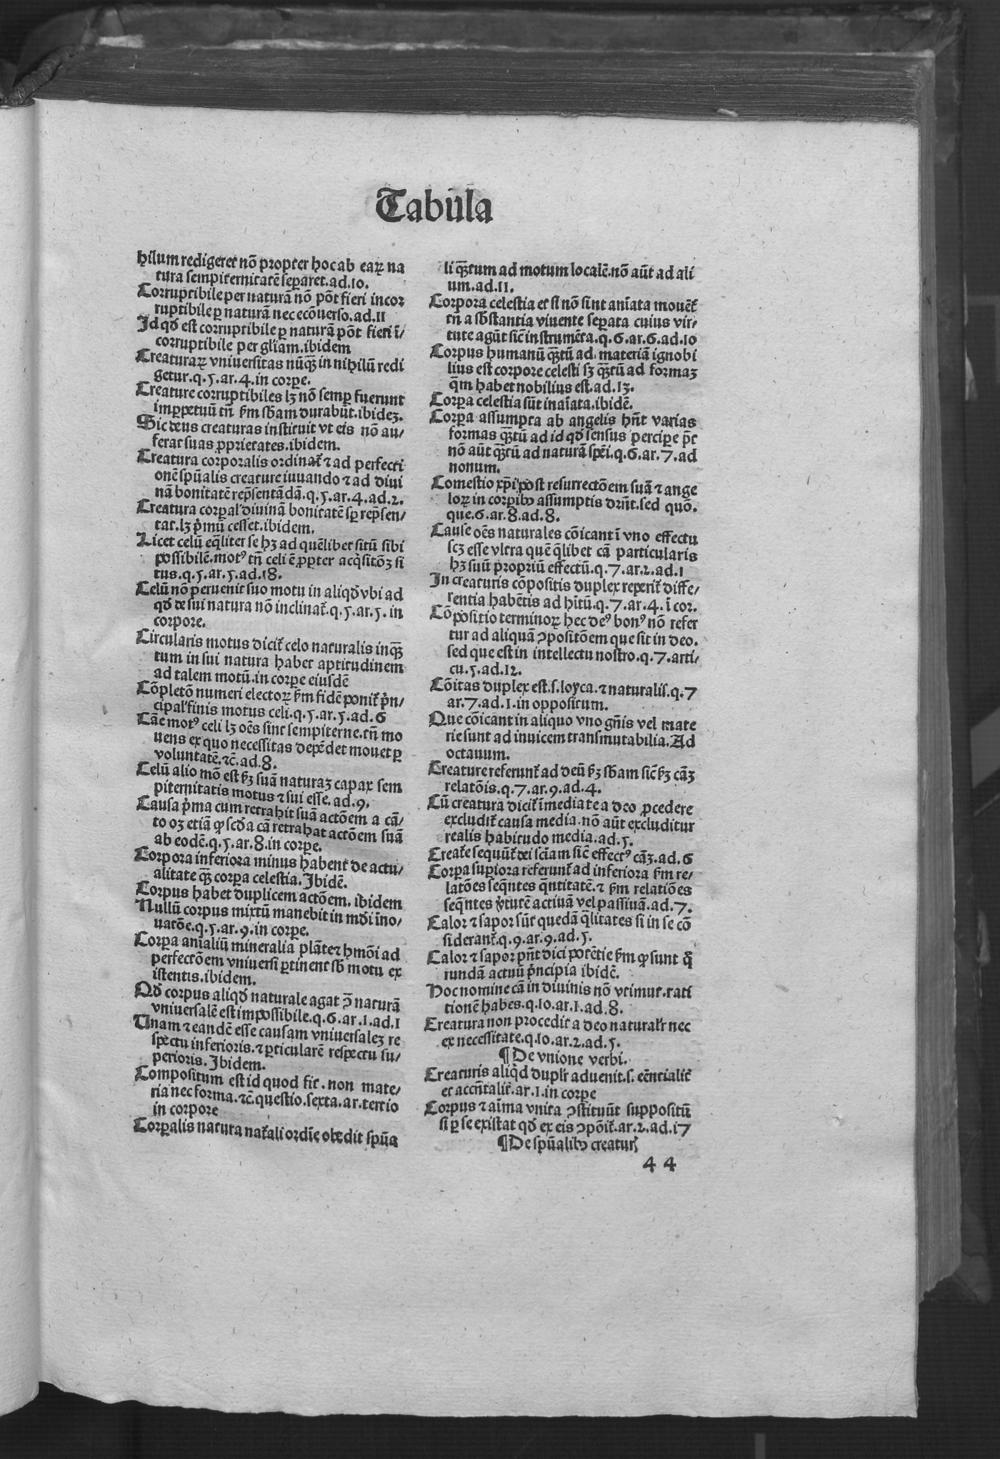 Tabula
hilum redigeret nõ propter hoc ab eaꝝ na
tura sempiternitatẽ separet.ad.10.
Corruptibile per naturã nõ põt fieri incor
ruptibile ꝑ naturã nec ecõuerso.ad.11
Id qđ est corruptibile ꝑ naturã põt fieri ĩ/
corruptibile per gl̃iam.ibidem
Creaturaꝝ vniuersitas nũꝗ̃ in nihilũ redi
getur.q.5.ar.4.in corꝑe.
Creature corruptibiles lꝫ nõ semꝑ fuerunt
imꝑpetuũ tñ ẜm sb̃am durabũt.ibideꝫ.
Sic deus creaturas instituit vt eis nõ au/
ferat suas ꝓprietates.ibidem.
Creatura corporalis ordinat̃ ⁊ ad perfecti
onẽ spũalis creature iuuando ⁊ ad diui
nã bonitatẽ rep̃sentãdã.q.5.ar.4.ad.2.
Creatura corꝑal̃ diuinã bonitatẽ sꝑ rep̃sen/
tat.lꝫ p̃mũ cesset.ibidem.
Licet celũ eq̃liter se hꝫ ad quẽlibet sitũ sibi
possibilẽ.motꝰ tñ celi ẽ ꝓpter acq̃sitõꝫ si
tus.q.5.ar.5.ad.18.
Celũ nõ peruenit suo motu in aliqđ vbi ad
qđ de sui natura nõ inclinat̃.q.5.ar.5.in
corpore.
Circularis motus dicit̃ celo naturalis inꝗ̃
tum in sui natura habet aptitudinem
ad talem motũ.in corꝑe eiusdẽ
Cõpletõ numeri electoꝝ ẜm fidẽ ponit̃ p̃n/
cipal̃ finis motus celi.q.5.ar.5.ad.6
Cãe motꝰ celi lꝫ oẽs sint sempiterne.tñ mo
uens ex quo necessitas depẽdet mouet ꝑ
voluntatẽ.⁊c̃.ad.8.
Celũ alio mõ est ẜꝫ suã naturaꝫ capax sem
piternitatis motus ⁊ sui esse.ad.9.
Causa p̃ma cum retrahit suã actõem a cã/
to oꝫ etiã ꝙ scđa cã retrahat actõem suã
ab eodẽ.q.5.ar.8.in corꝑe.
Corpora inferiora minus habent̃ de actu/
alitate ꝗ̃ corꝑa celestia.Ibidẽ.
Corpus habet duplicem actõem.ibidem
Nullũ corpus mixtũ manebit in mũdi ĩno/
uatõe.q.5.ar.9.in corꝑe.
Corꝑa anĩaliũ mineralia plãte ⁊ hmõi ad
perfectõem vniuersi ꝑtinent sb̃ motu ex
istentis.ibidem.
Qđ corpus aliqđ naturale agat ꝯ̃ naturã
vniuersalẽ est impossibile.q.6.ar.1.ad.1
Vnam ⁊ eandẽ esse causam vniuersaleꝫ re
spectu inferioris.⁊ ꝑticularẽ respectu su/
perioris.Ibidem.
Compositum est id quod fit.non mate/
ria nec forma.⁊c̃.questio.sexta.ar.tertio
in corpore
Corꝑalis natura nat̃ali ordĩe obedit spũa
li ꝗ̃tum ad motum localẽ.nõ aũt ad ali
um.ad.11.
Corpora celestia et si nõ sint anĩata mouẽt̃
tñ a sb̃stantia viuente seꝑata cuius vir/
tute agũt sic̃ instrumẽta.q.6.ar.6.ad.10
Corpus humanũ ꝗ̃tũ ad materiã ignobi
lius est corpore celesti sꝫ ꝗ̃tũ ad formaꝫ
q̃m habet nobilius est.ad.13.
Corꝑa celestia sũt inaĩata.ibidẽ.
Corꝑa assumpta ab angelis hñt varias
formas ꝗ̃tũ ad id qđ sensus percipe p̃t
nõ aũt ꝗ̃tũ ad naturã sp̃ei.q.6.ar.7.ad
nonum.
Comestio xp̃i post resurrectõem suã ⁊ ange
loꝝ in corꝑibꝰ assumptis dr̃nt.sed quõ.
que.6.ar.8.ad.8.
Cause oẽs naturales cõicant ĩ vno effectu
scꝫ esse vltra quẽ q̃libet cã particularis
hꝫ suũ ꝓpriũ effectũ.q.7.ar.2.ad.1
In creaturis cõpositis duplex reperit̃ diffe/
rentia habẽtis ad hĩtũ.q.7.ar.4.ĩ cor.
Cõpositio terminoꝝ hec deꝰ bonꝰ nõ refer
tur ad aliquã ꝯpositõem que sit in deo.
sed que est in intellectu nostro.q.7.arti/
cu.5.ad.12.
Cõitas duplex est.s.loyca.⁊ naturalis.q.7
ar.7.ad.1.in oppositum.
Que cõicant in aliquo vno gñis vel mate
rie sunt ad inuicem transmutabilia.Ad
octauum.
Creature referunt̃ ad deũ ẜꝫ sb̃am sic̃ ẜꝫ cãꝫ
relatõis.q.7.ar.9.ad.4.
Cũ creatura dicit̃ ĩmediate a deo ꝓcedere
excludit̃ causa media.nõ aũt excluditur
realis habitudo media.ad.5.
Creat̃e sequũt̃ dei sciam sic̃ effectꝰ cãꝫ.ad.6
Corꝑa suꝑiora referunt̃ ad inferiora ẜm re/
latões seq̃ntes q̃ntitatẽ.⁊ ẜm relatiões
seq̃ntes v̓tutẽ actiuã vel passiuã.ad.7.
Calor ⁊ sapor sũt quedã q̃litates si in se cõ
siderant̃.q.9.ar.9.ad.5.
Calor ⁊ sapor pñt dici potẽtie ẜm ꝙ sunt q̃
rundã actuũ p̃ncipia ibidẽ.
Hoc nomine cã in diuinis nõ vtimur.rati
tionẽ habes.q.10.ar.1.ad.8.
Creatura non procedit a deo naturalr̃ nec
ex necessitate.q.10.ar.2.ad.5.
¶De vnione verbi.
Creaturis aliq̃d duplr̃ aduenit.s.eẽntialit̃
et accñtalit̃.ar.1.in corpe
Corpus ⁊ aĩma vnita ꝯstituũt suppositũ
si ꝑ se existat qđ ex eis ꝯpõit̃.ar.2.ad.17
¶De spũalibꝰ creatur̃
44